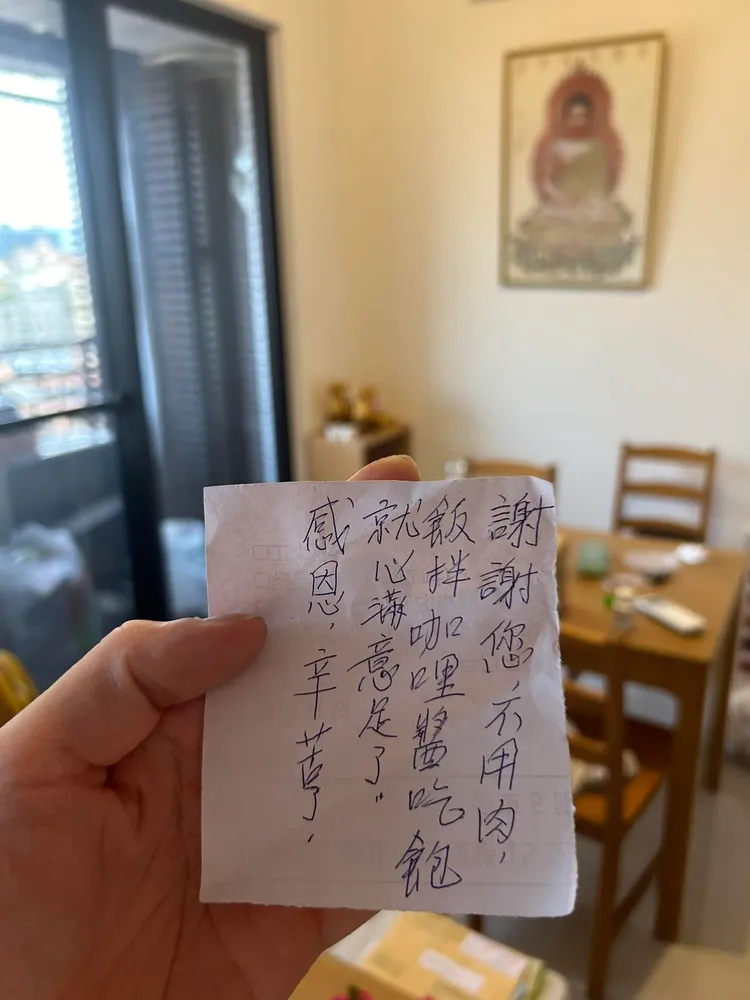 謝謝您，不用肉，
飯拌咖哩醬吃飽
就心滿意足了〞
感恩，辛苦了．